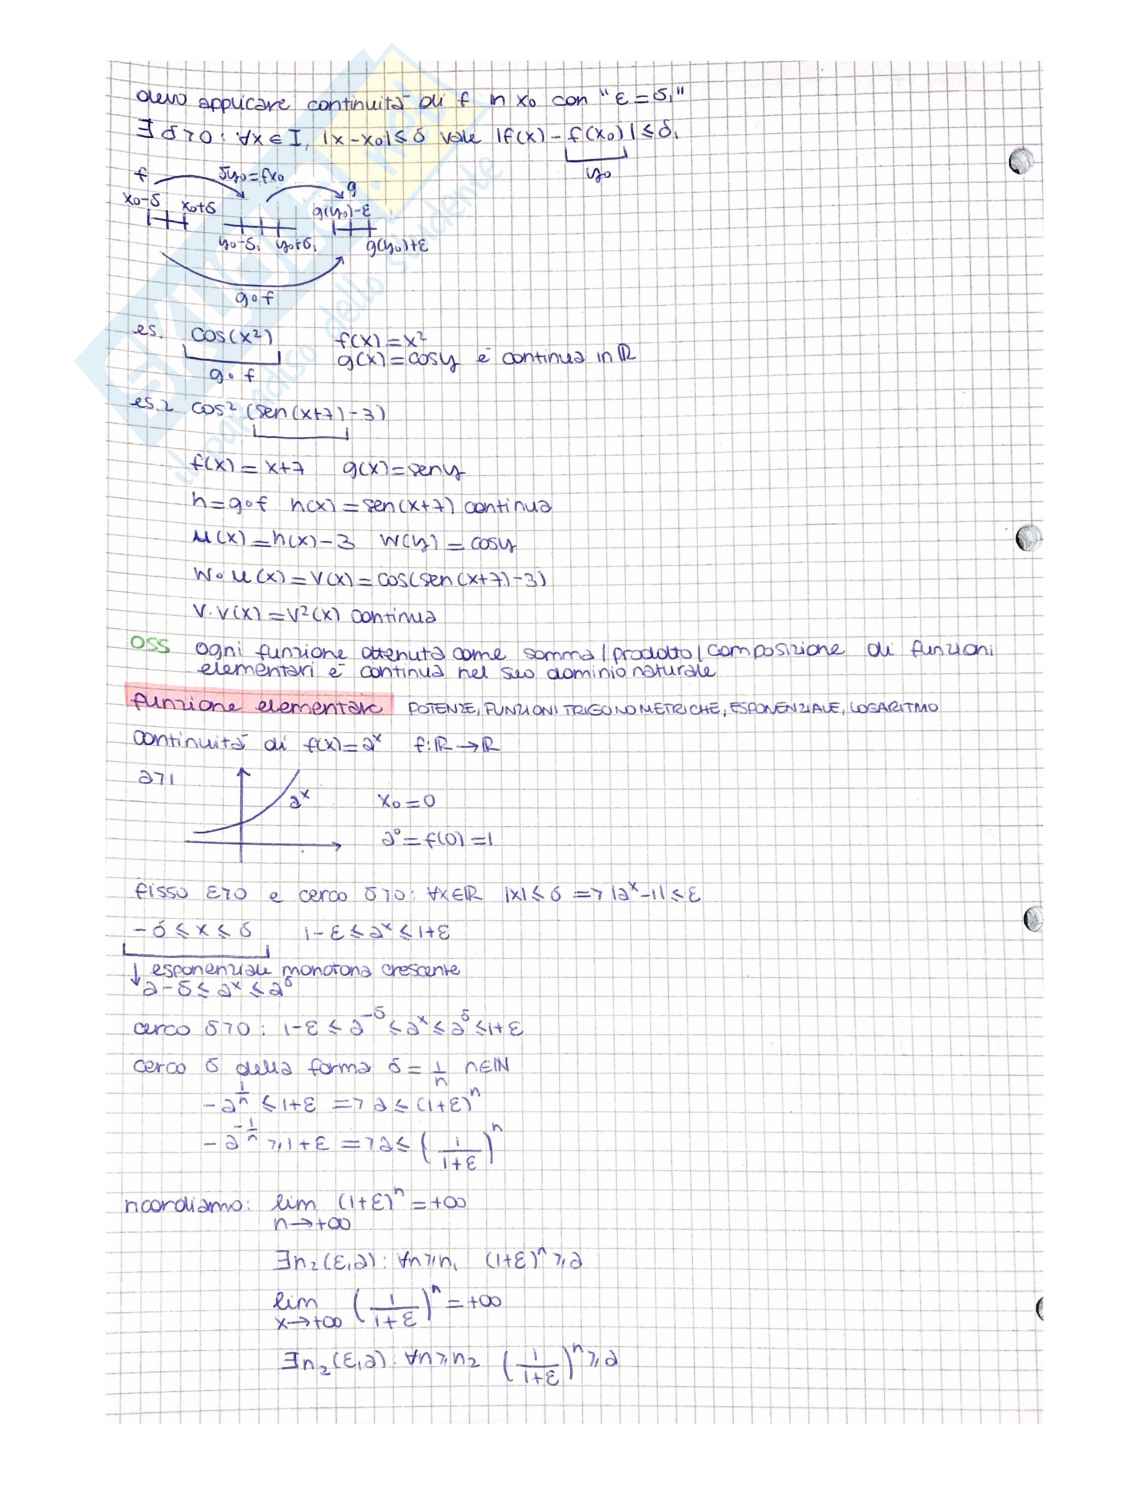 devo applicare continuità di f in x₀ con "ε = δ₁"
∃ δ>0 : ∀x ∈ I, |x-x₀| ≤ δ vale |f(x) - f(x₀)| ≤ δ₁
y₀
f
δy₀=fx₀
g
x₀-δ x₀+δ
g(y₀)-ε
y₀-δ₁ y₀+δ₁ g(y₀)+ε
g∘f
es. cos(x²) f(x)=x²
g(x)=cosy è continua in ℝ
g∘f
es.2 cos² (sen(x+7)-3)
f(x) = x+7 g(x)=seny
h=g∘f h(x)=sen(x+7) continua
u(x)=h(x)-3 w(y)=cosy
w∘u(x)=v(x)=cos(sen(x+7)-3)
v·v(x)=v²(x) continua
OSS ogni funzione ottenuta come somma/prodotto/composizione di funzioni
elementari è continua nel suo dominio naturale
funzione elementare POTENZE, FUNZIONI TRIGONOMETRICHE, ESPONENZIALE, LOGARITMO
continuità di f(x)=aˣ f:ℝ→ℝ
a>1
aˣ
x₀=0
a⁰=f(0)=1
fisso ε>0 e cerco δ>0: ∀x∈ℝ |x|≤δ => |aˣ-1|≤ε
-δ≤x≤δ 1-ε≤aˣ≤1+ε
↓ esponenziale monotona crescente
a-δ≤aˣ≤a^δ
cerco δ>0: 1-ε≤a^-δ≤aˣ≤a^δ≤1+ε
cerco δ della forma δ=1/n n∈ℕ
-a^(1/n) ≤1+ε => a≤(1+ε)ⁿ
-a^(-1/n) ≥1+ε => a≤(1/(1+ε))ⁿ
ricordiamo: lim (1+ε)ⁿ=+∞
n→+∞
∃n₂(ε,a): ∀n≥n₁ (1+ε)ⁿ≥a
lim (1/(1+ε))ⁿ=+∞
x→+∞
∃n₂(ε,a): ∀n≥n₂ (1/(1+ε))ⁿ≥a